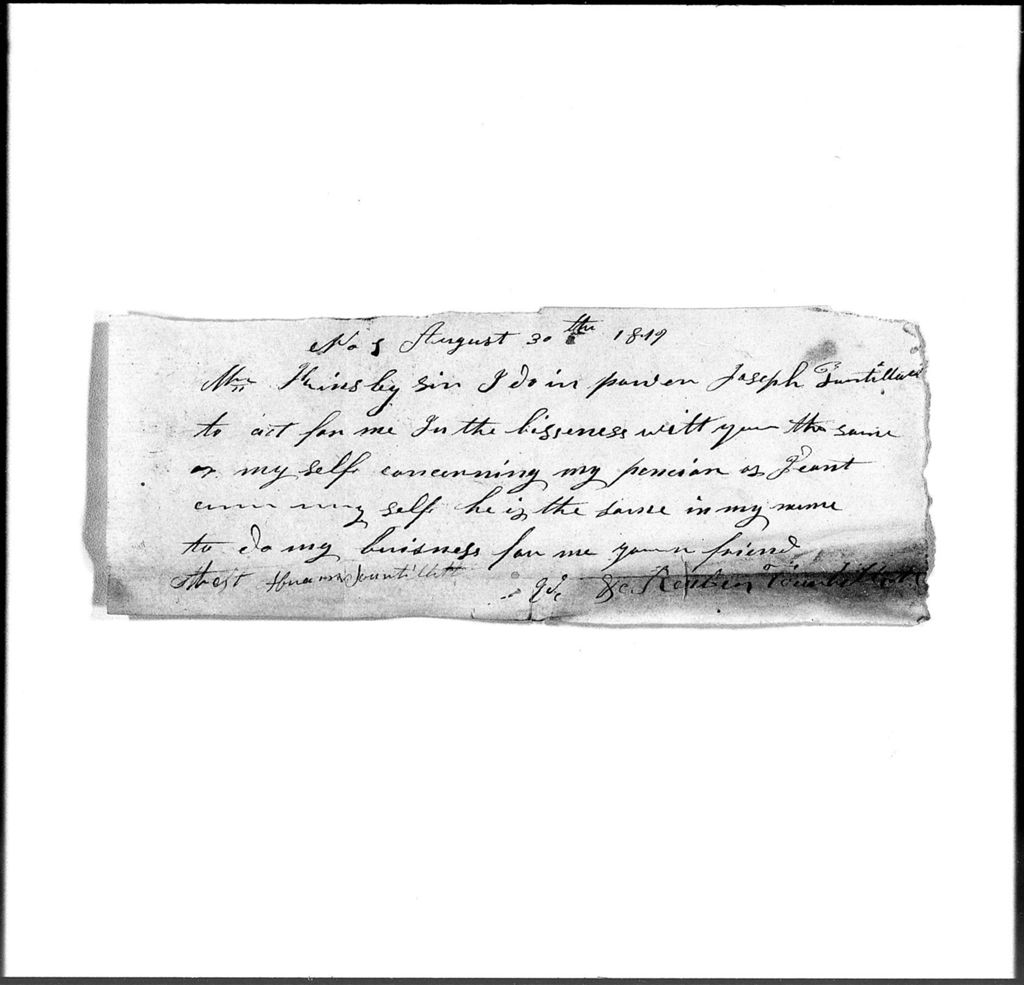 No 5 August 30th 1819
Mr Kinsby sir I do in power Joseph Tourtillott
to act for me In the bisseness witt your the same
as my self concerning my pencion as I cant
cum my self he is the same in my name
to do my buisness for me your friend
Atest Abraam Tourtillott &c Reuben Tourtillott